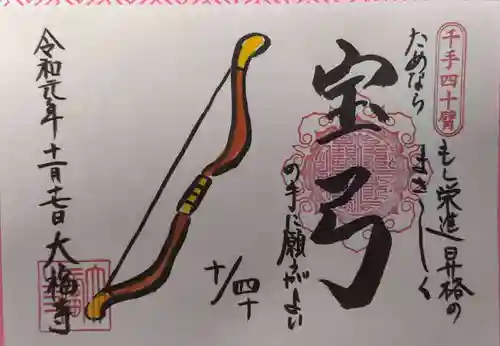 千手四十臂
もし栄進昇格の
ためなら
まさしく
宝弓
の手に願がよい
十/四十
令和元年十一月十七日
大福寺